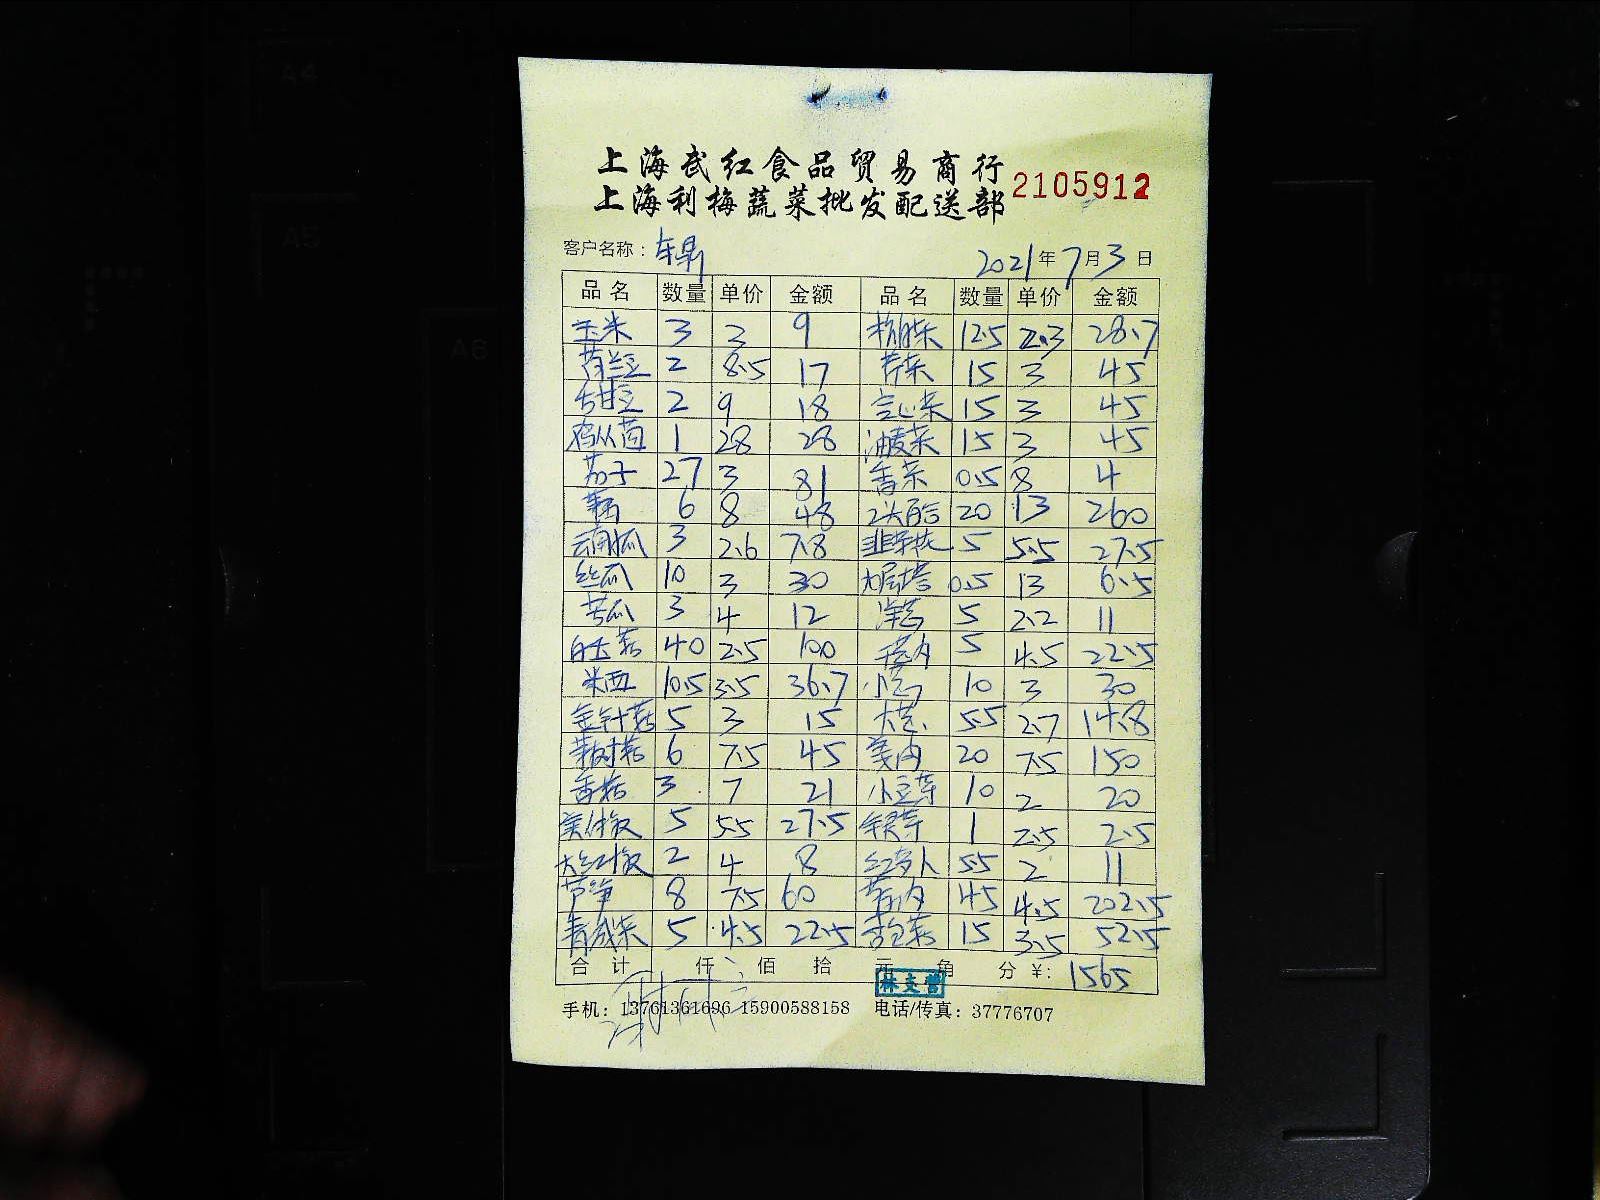 上海武红食品贸易商行
上海利梅蔬菜批发配送部 2105912
客户名称： 2021年7月3日
品名 数量 单价 金额 品名 数量 单价 金额
玉米 3 3 9 12.5 2.3 28.7
荷兰豆 2 8.5 17 芹菜 15 3 45
甜豆 2 9 18 空心菜 15 3 45
鸡从菌 1 28 28 油麦菜 15 3 45
茄子 27 3 81 香菜 0.5 8 4
藕 6 8 48 20 13 260
云南瓜 3 2.6 7.8 韭菜 5 5.5 27.5
丝瓜 10 3 30 0.5 13 6.5
苦瓜 3 4 12 洋葱 5 2.2 11
白玉菇 40 2.5 100 5 4.5 22.5
米西 10.5 3.5 36.7 小葱 10 3 30
金针菇 5 3 15 大葱 5.5 2.7 14.8
茶树菇 6 7.5 45 姜肉 20 7.5 150
香菇 3 7 21 小豆芽 10 2 20
美人椒 5 5.5 27.5 银芽 1 2.5 2.5
大红椒 2 4 8 红萝卜 5.5 2 11
芦笋 8 7.5 60 45 4.5 202.5
青咸菜 5 4.5 22.5 杏包菇 15 3.5 52.5
合计 仟 佰 拾 元 角 分 ¥: 1565
林支营
手机：13761361696 15900588158 电话/传真：37776707